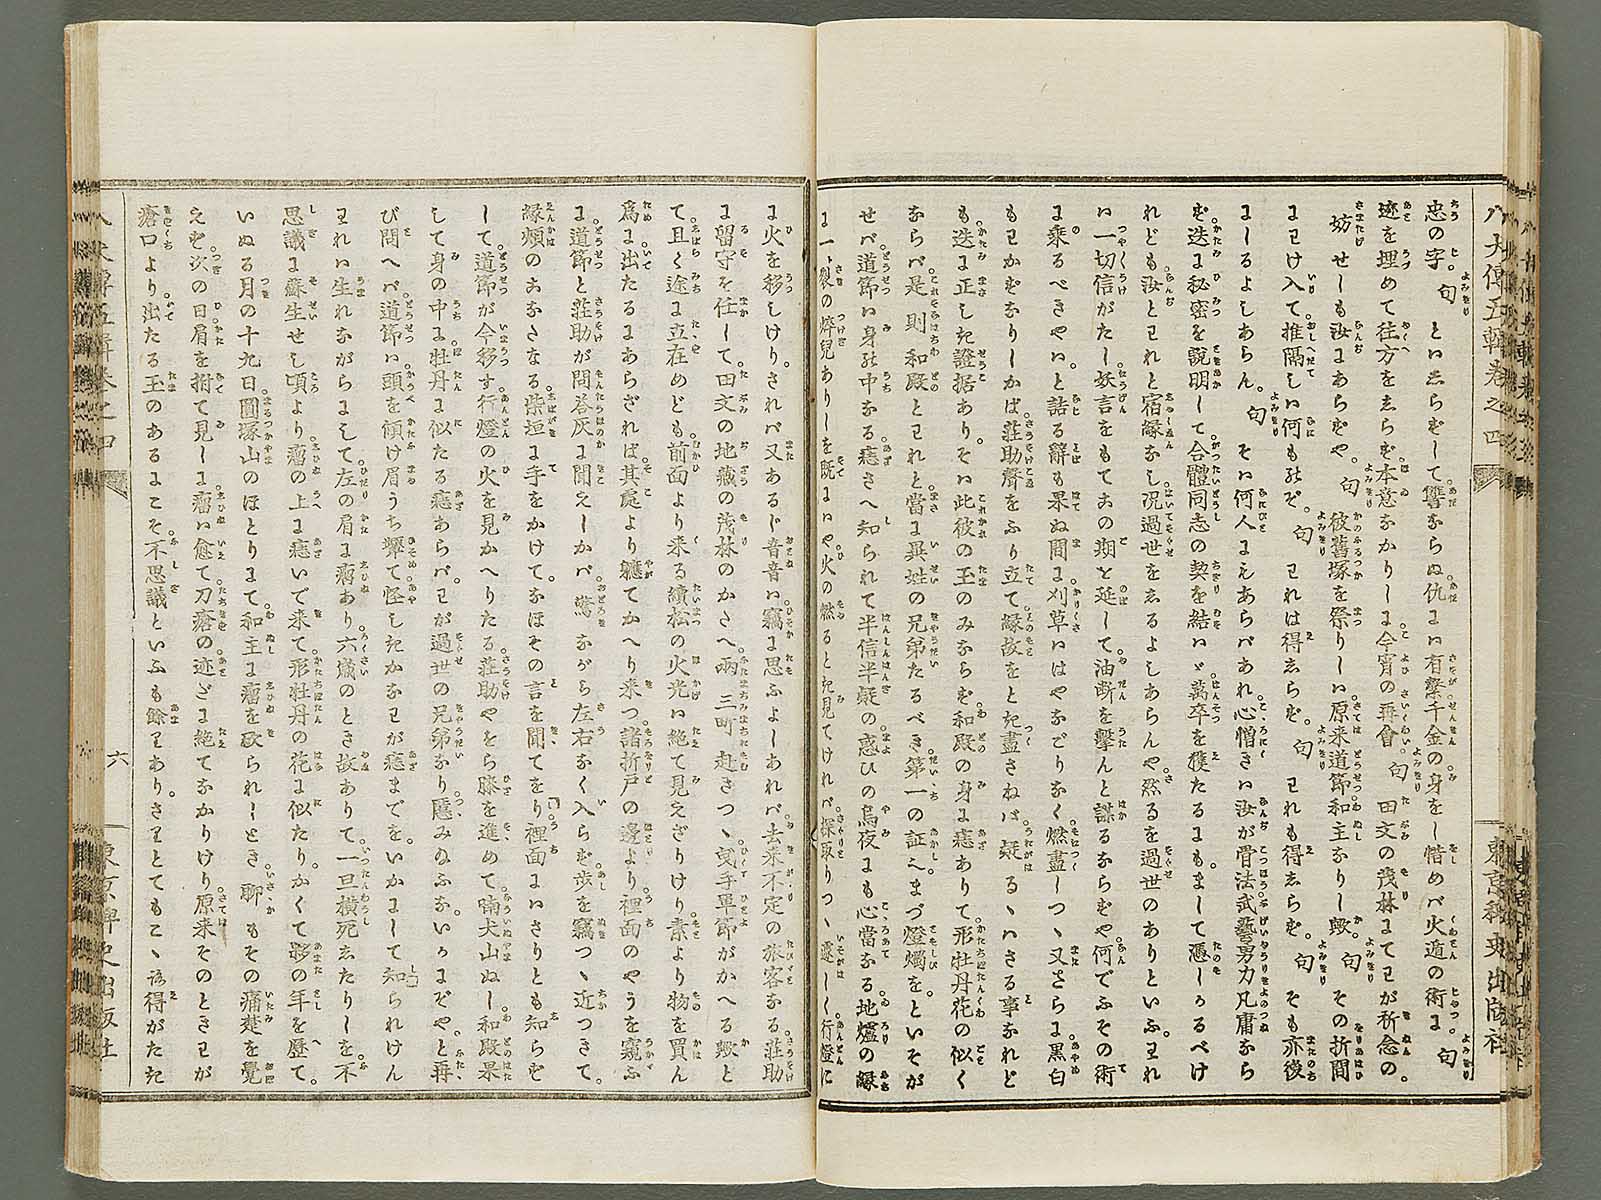 八犬傳五輯卷之四
東京稗史出版社
忠の字。句といふしらずして讐ならぬ仇に有繋千金の身をし惜めバ火遁の術に。句
迹を埋めて往方をしらず本意なかりしに今宵の再會。句田文の茂林にてわが祈念の。
坊せしも汝にあらずや。句彼舊塚を祭りしハ原来道節和主なりし歟。句その折間
にわけ入て推隔しハ何もぞ。句われは得しらず。句われも得しらず。句そも亦後
にしるよしあらん。句そハ何人にもあらバあれ心憎きハ汝が骨法武藝勇力凡庸なら
ず迭に秘密を説明して合體同志の契を結ハヾ萬卒を獲たるにもまして憑しかるべけ
れども汝とわれと宿縁なし况過世をしるよしあらんや然るを過世のありといふ。われ
ハ一切信がたし妖言をもてあの期を延して油断を撃んと謀るならずや何でふその術
に乗るべきと詰る辭も果ぬ間に刈草ハはやなごりなく燃盡しつ、又さらに黒白
もわかずなりしかば。莊助聲をふり立て縁故をとき盡さねバ疑るヽハさる事なれど
も迭に正しき證据あり。そハ此彼の玉のみならず和殿の身に痣ありて形牡丹花の似く
ならバ是則和殿とわれと當に異姓の兄弟たるべき第一の証。まづ燈燭を。といそが
せバ道節ハ身の中なる痣さへ知られて半信半疑の惑ひの烏夜にも心當なる地爐の縁
に一ト裂の焠兒ありしを既にハや火の燃るとき見てけれバ探取りつヽ遽しく行燈に
に火を移しけり。されバ又あるじ音音ハ竊に思ふよしあれバ去来不定の旅客なる莊助
に留守を任して。田文の地蔵の茂林のかさへ。兩三町赴きつヽ曳手單節がかへる歟と
て且く途に立在めども前面より来る續松の火光ハ絶て見えざりけり。素より物を買ん
爲に出たるにあらざれば其處より軈てかへり来つ諸折戸の邊より裡面のやうを窺ふ
に道節と莊助が問荅灰に聞えしかバ。驚ながら左右なく入らず歩を竊つヽ近つきて。
縁頬のあなさなる柴垣に手をかけて。なほその言を聞てをり。裡面にハさりとも知らず
して。道節が今移す行燈の火を見かへりたる莊助やをら膝を進めて喃犬山ぬし和殿果
して身の中に牡丹に似たる痣あらバ。わが過世の兄弟なり隱みぬふな。いかにぞや。と再
び問へバ道節ハ頭を傾け眉うち顰て怪しきかなわが痣までを。いかにして知られけん
われハ生れながらにして左の肩に瘤あり六歳のとき故ありて一旦横死したりしを。不
思議に蘇生せし頃より瘤の上に痣いで来て形牡丹の花に似たり。かくて夥の年を歴て。
いぬる月の十九日。圓塚山のほとりにて和主に瘤を砍られしとき。聊もその痛楚を覺
えず次の日肩を拊て見しに瘤ハ愈て刀瘡の迹ざま絶てなかりけり原来そのときわが
瘡口より出たる玉のあるにこそ不思議といふも餘りあり。さりとてもこヽろ得がたき
八犬傳五輯卷之四
六
東京稗史出版社